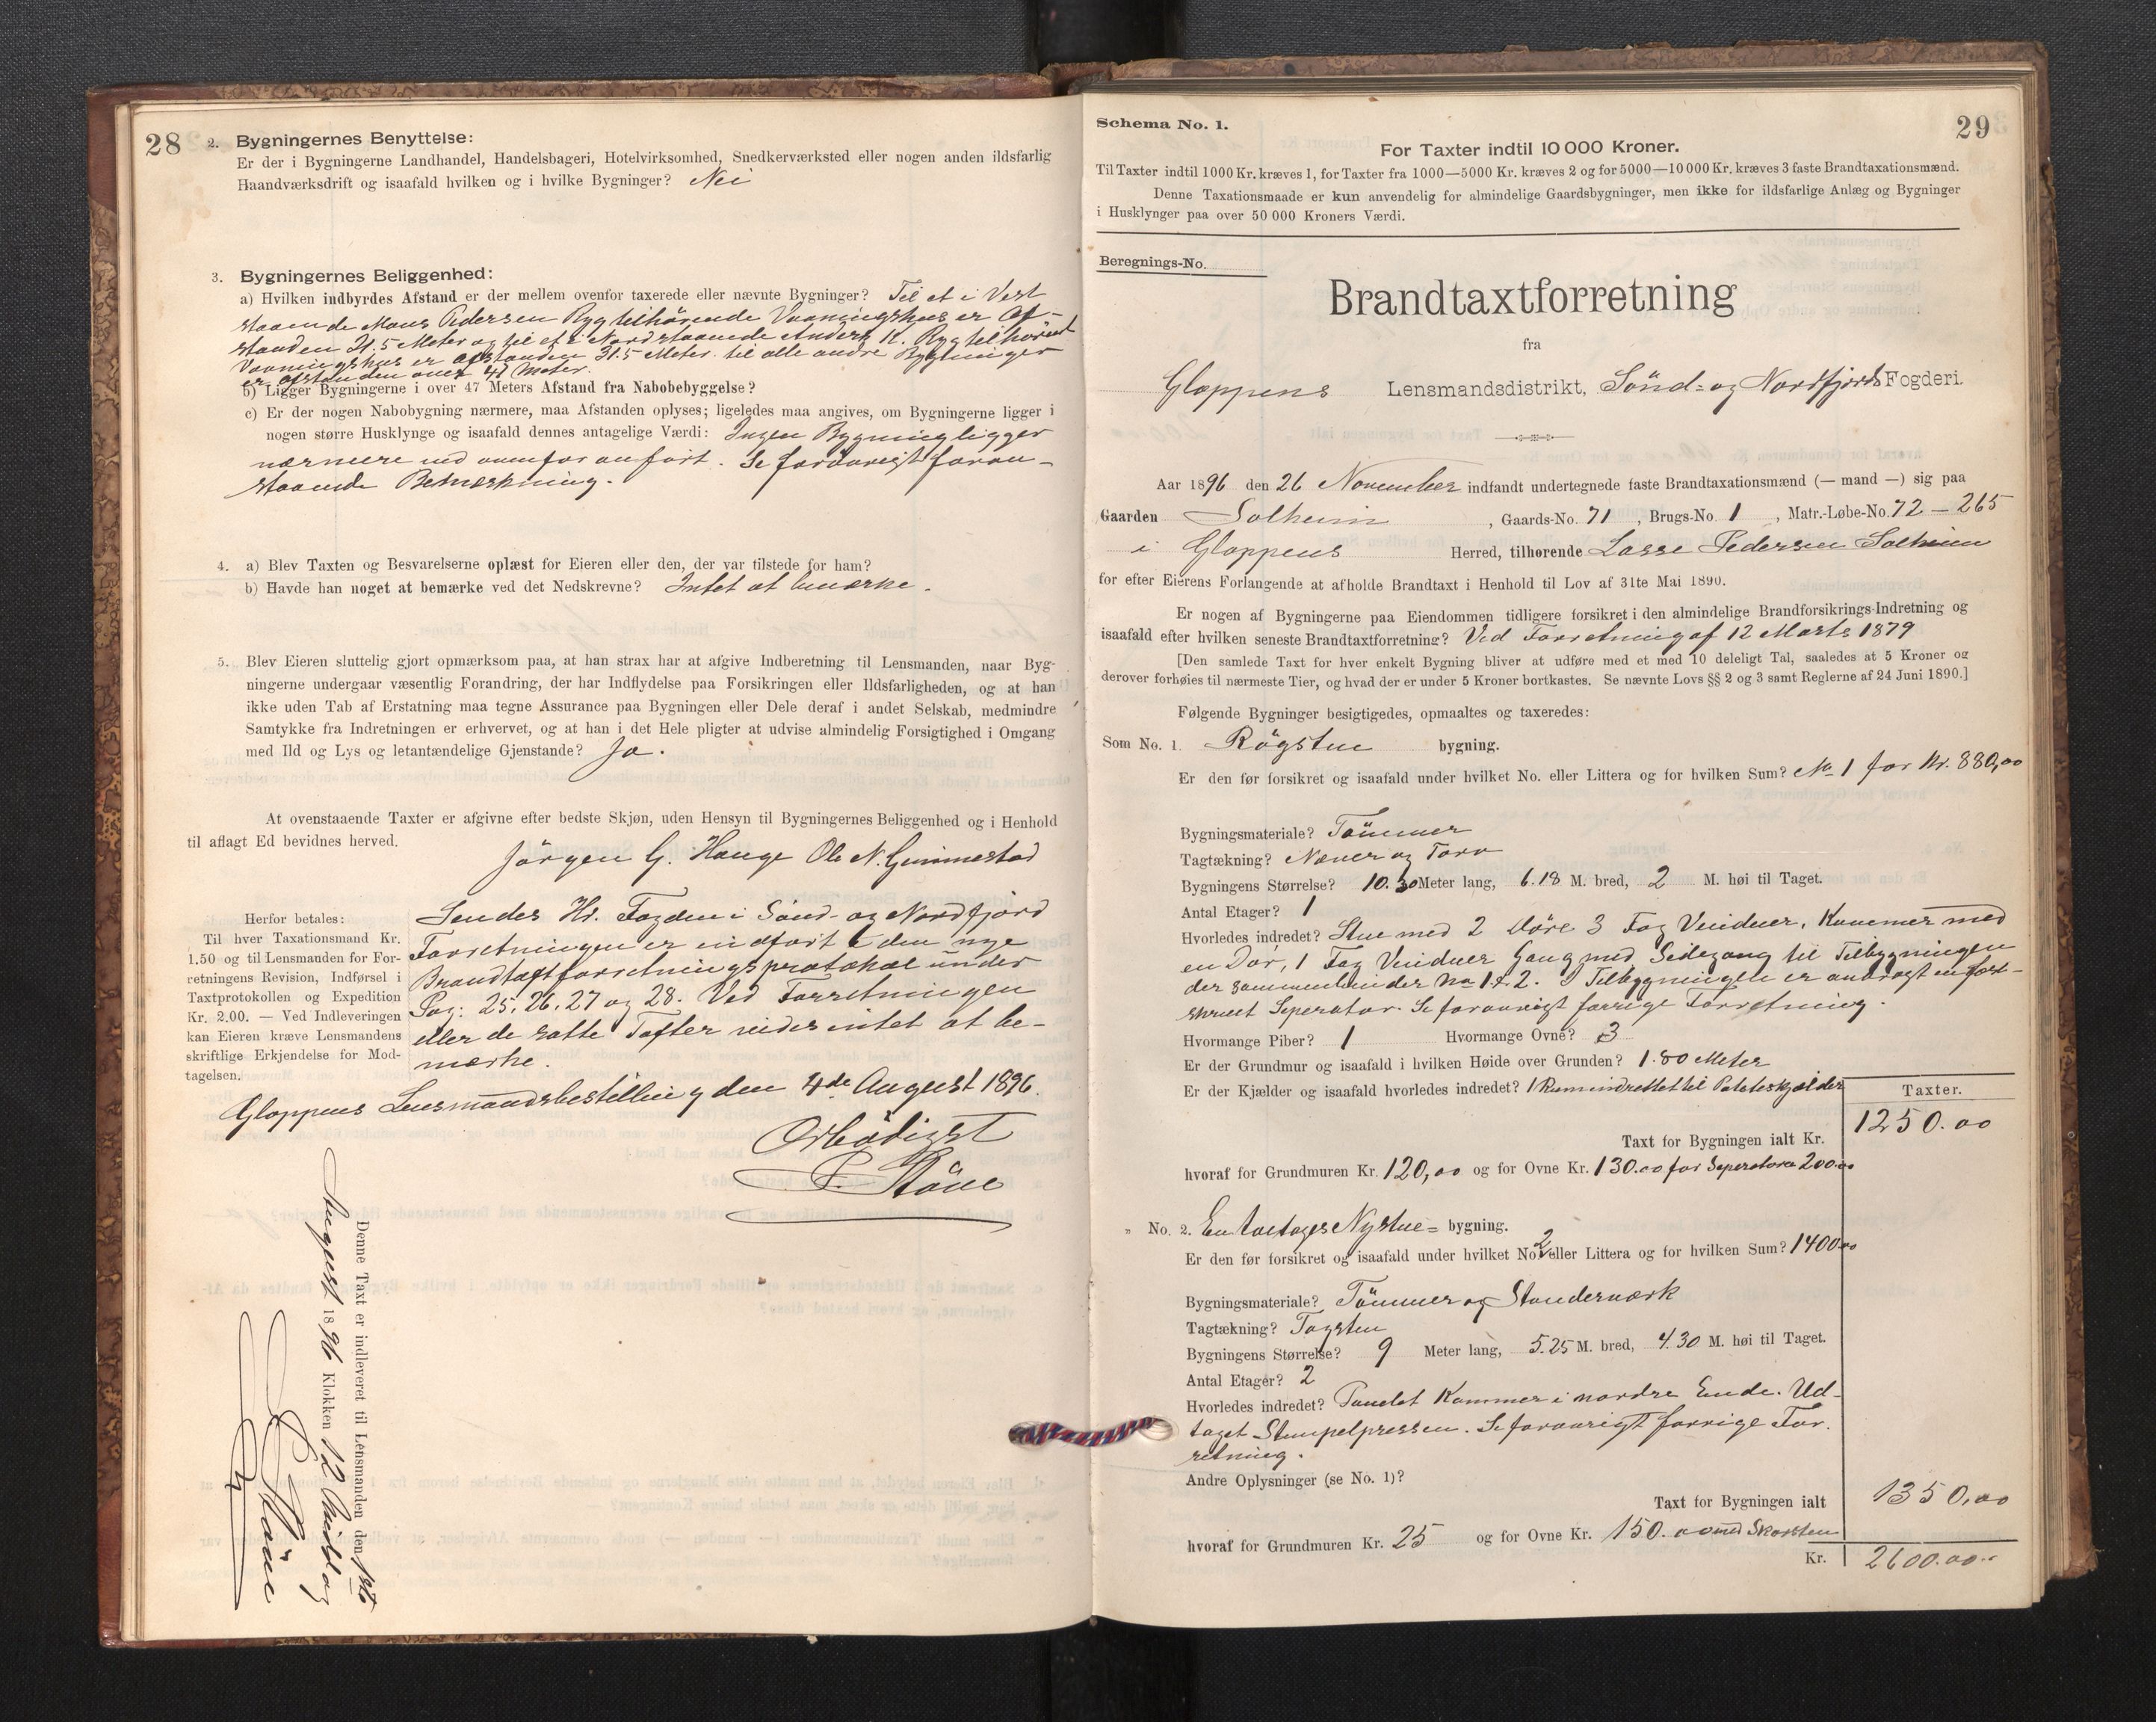 28
2. Bygningernes Benyttelse:
Er der i Bygningerne Landhandel, Handelsbageri, Hotelvirksomhed, Snedkerværksted eller nogen anden ildsfarlig
Haandværksdrift og isaafald hvilken og i hvilke Bygninger? Nei
3. Bygningernes Beliggenhed:
a) Hvilken indbyrdes Afstand er der mellem ovenfor taxerede eller nævnte Bygninger? Til et i Vest
staaende Mons Pedersen Ryg tilhörende Vaaningshus er Af-
standen 21.5 Meter og til et i Nord staaende Anders K. Ryg tilhörend
Vaaningshus er afstanden 31.5 Meter. til alle andre Bygninger
er afstanden over 47 Meter.
b) Ligger Bygningerne i over 47 Meters Afstand fra Nabobebyggelse?
c) Er der nogen Nabobygning nærmere, maa Afstanden oplyses; ligeledes maa angives, om Bygningerne ligger i
nogen større Husklynge og isaafald dennes antagelige Værdi: Ingen Bygning ligger
nærmere end ovenfor anfört. Se forövrigt foran-
staaende Bemærkning.
4. a) Blev Taxten og Besvarelserne oplæst for Eieren eller den, der var tilstede for ham?
b) Havde han noget at bemærke ved det Nedskrevne? Intet at bemærke.
5. Blev Eieren sluttelig gjort opmærksom paa, at han strax har at afgive Indberetning til Lensmanden, naar Byg-
ningerne undergaar væsentlig Forandring, der har Indflydelse paa Forsikringen eller Ildsfarligheden, og at han
ikke uden Tab af Erstatning maa tegne Assurance paa Bygningen eller Dele deraf i andet Selskab, medmindre
Samtykke fra Indretningen er erhvervet, og at han i det Hele pligter at udvise almindelig Forsigtighed i Omgang
med Ild og Lys og letantændelige Gjenstande? Ja.
At ovenstaaende Taxter er afgivne efter bedste Skjøn, uden Hensyn til Bygningernes Beliggenhed og i Henhold
til aflagt Ed bevidnes herved.
Jörgen G. Hauge Ole N. Gimmestad
Herfor betales:
Til hver Taxationsmand Kr.
1.50 og til Lensmanden for For-
retningens Revision, Indførsel i
Taxtprotokollen og Expedition
Kr. 2.00. — Ved Indleveringen
kan Eieren kræve Lensmandens
skriftlige Erkjendelse for Mod-
tagelsen.
Sendes Hr. Fogden i Sönd- og Nordfjord
Forretningen er indfört i den nye
Brandtaxtforretningsprotokol under
Pag: 25, 26, 27 og 28. Ved Forretningen
eller de satte Taxter vides intet at be-
mærke.
Gloppens Lensmandsbestilling den 4de August 1896.
Ærbödigst
Denne Taxt er indleveret til Lensmanden den 1ste
August 1896 Klokken 12 Middag
29
Schema No. 1.
For Taxter indtil 10 000 Kroner.
Til Taxter indtil 1000 Kr. kræves 1, for Taxter fra 1000—5000 Kr. kræves 2 og for 5000—10 000 Kr. kræves 3 faste Brandtaxationsmænd.
Denne Taxationsmaade er kun anvendelig for almindelige Gaardsbygninger, men ikke for ildsfarlige Anlæg og Bygninger
i Husklynger paa over 50 000 Kroners Værdi.
Beregnings-No.
Brandtaxtforretning
fra
Gloppens Lensmandsdistrikt, Sönd- og Nordfjords Fogderi.
Aar 1896 den 26 November indfandt undertegnede faste Brandtaxationsmænd (— mand —) sig paa
Gaarden Solheim, Gaards-No. 71, Brugs-No. 1, Matr.-Løbe-No. 72 — 265
i Gloppens Herred, tilhørende Lasse Pedersen Solheim
for efter Eierens Forlangende at afholde Brandtaxt i Henhold til Lov af 31te Mai 1890.
Er nogen af Bygningerne paa Eiendommen tidligere forsikret i den almindelige Brandforsikrings-Indretning og
isaafald efter hvilken seneste Brandtaxtforretning? Ved Forretning af 12 Marts 1879
[Den samlede Taxt for hver enkelt Bygning bliver at udføre med et med 10 deleligt Tal, saaledes at 5 Kroner og
derover forhøies til nærmeste Tier, og hvad der er under 5 Kroner bortkastes. Se nævnte Lovs §§ 2 og 3 samt Reglerne af 24 Juni 1890.]
Følgende Bygninger besigtigedes, opmaaltes og taxeredes:
Som No. 1. Rögstue bygning.
Er den før forsikret og isaafald under hvilket No. eller Littera og for hvilken Sum? No 1 for Kr. 880,00
Bygningsmateriale? Tömmer
Tagtækning? Næver og Torv
Bygningens Størrelse? 10.30 Meter lang, 6.18 M. bred, 2 M. høi til Taget.
Antal Etager? 1
Hvorledes indredet? Stue med 2 Döre 3 Fag Vinduer, Kammer med
en Dör, 1 Fag Vinduer Gang med Sidegang til Tilbygningen
der sammenbinder No 1 & 2. I Tilbygningen er anbragt en fast-
skruet Seperator. Se forövrigt forrige Forretning.
Hvormange Piber? 1 Hvormange Ovne? 3
Er der Grundmur og isaafald i hvilken Høide over Grunden? 1.80 Meter
Er der Kjælder og isaafald hvorledes indredet? 1 Rum indrettet til Poteteskjælder
Taxter.
Taxt for Bygningen ialt Kr. 1250.00
hvoraf for Grundmuren Kr. 120,00 og for Ovne Kr. 130.00 for Seperatoren 200.00
" No. 2. En toetages Nystue- bygning.
Er den før forsikret og isaafald under hvilket No. 2 eller Littera og for hvilken Sum? 1400.00
Bygningsmateriale? Tömmer og Standerværk
Tagtækning? Tagsten
Bygningens Størrelse? 9 Meter lang, 5.25 M. bred, 4.30 M. høi til Taget.
Antal Etager? 2
Hvorledes indredet? Panelet Kammer i nordre Ende. Ud-
taget Stempelpressen. Se forövrigt forrige For.
retning.
Andre Oplysninger (se No. 1)?
Taxt for Bygningen ialt 1350,00
hvoraf for Grundmuren Kr. 25 og for Ovne Kr. 150.00 med Skorsten
Kr. 2600.00